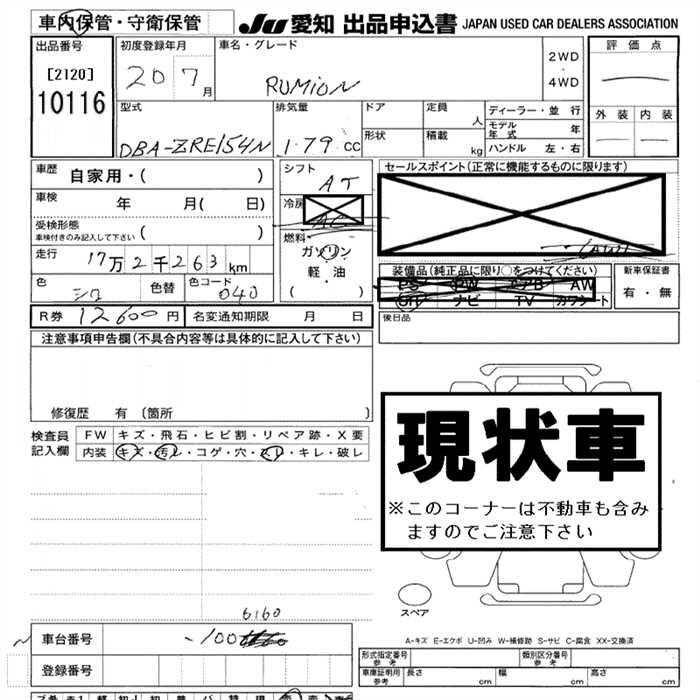 車内保管・守衛保管 JU 愛知 出品申込書 JAPAN USED CAR DEALERS ASSOCIATION
出品番号 初度登録年月 車名・グレード 評価点
[2120]
10116
20 7月 RUMION 2WD・4WD
外装 内装
型式 排気量 ドア 定員 人 ディーラー・並行
モデル年式 年
DBA-ZRE154N 1.79 cc 形状 積載 kg ハンドル 左・右
車歴 自家用・( ) シフト AT セールスポイント(正常に機能するものに限ります)
車検 年 月( 日) 冷房 AC
受検形態
車検付きのみ記入して下さい ( ) 燃料 ガソリン
軽・油
・( )
走行 17万2千263km
装備品(純品品に限り○をつけてください) 新車保証書
PS PW エアB AW 有・無
ナビ TV カワシート
色 シロ 色替 色コード 040
後日品
R券 12600円 名変通知期限 月 日
注意事項申告欄(不具合内容等は具体的に記入して下さい)
修復歴 有 〔箇所 〕
検査員記入欄 FW キズ・飛石・ヒビ割・リペア跡・X要
内装 キズ・汚レ・コゲ・穴・スレ・キレ・破レ
現状車
※このコーナーは不動車も含み
ますのでご注意下さい
スペア
6160
車台番号 -100
A-キズ E-エクボ U-凹み W-補修跡 S-サビ C-腐食 XX-交換済
登録番号
形式指定番号 参考 類別区分番号 参考
車庫証明用 参考 長さ cm 幅 cm 高さ cm